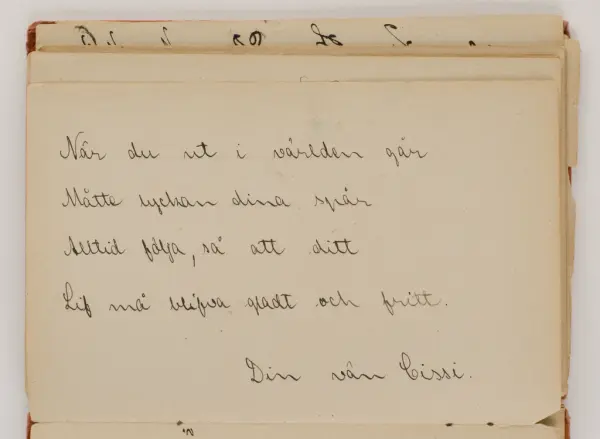 När du ut i världen går
Måtte lyckan dina spår
Alltid följa, så att ditt
Lif må blifva gladt och fritt.
Din vän Cissi.